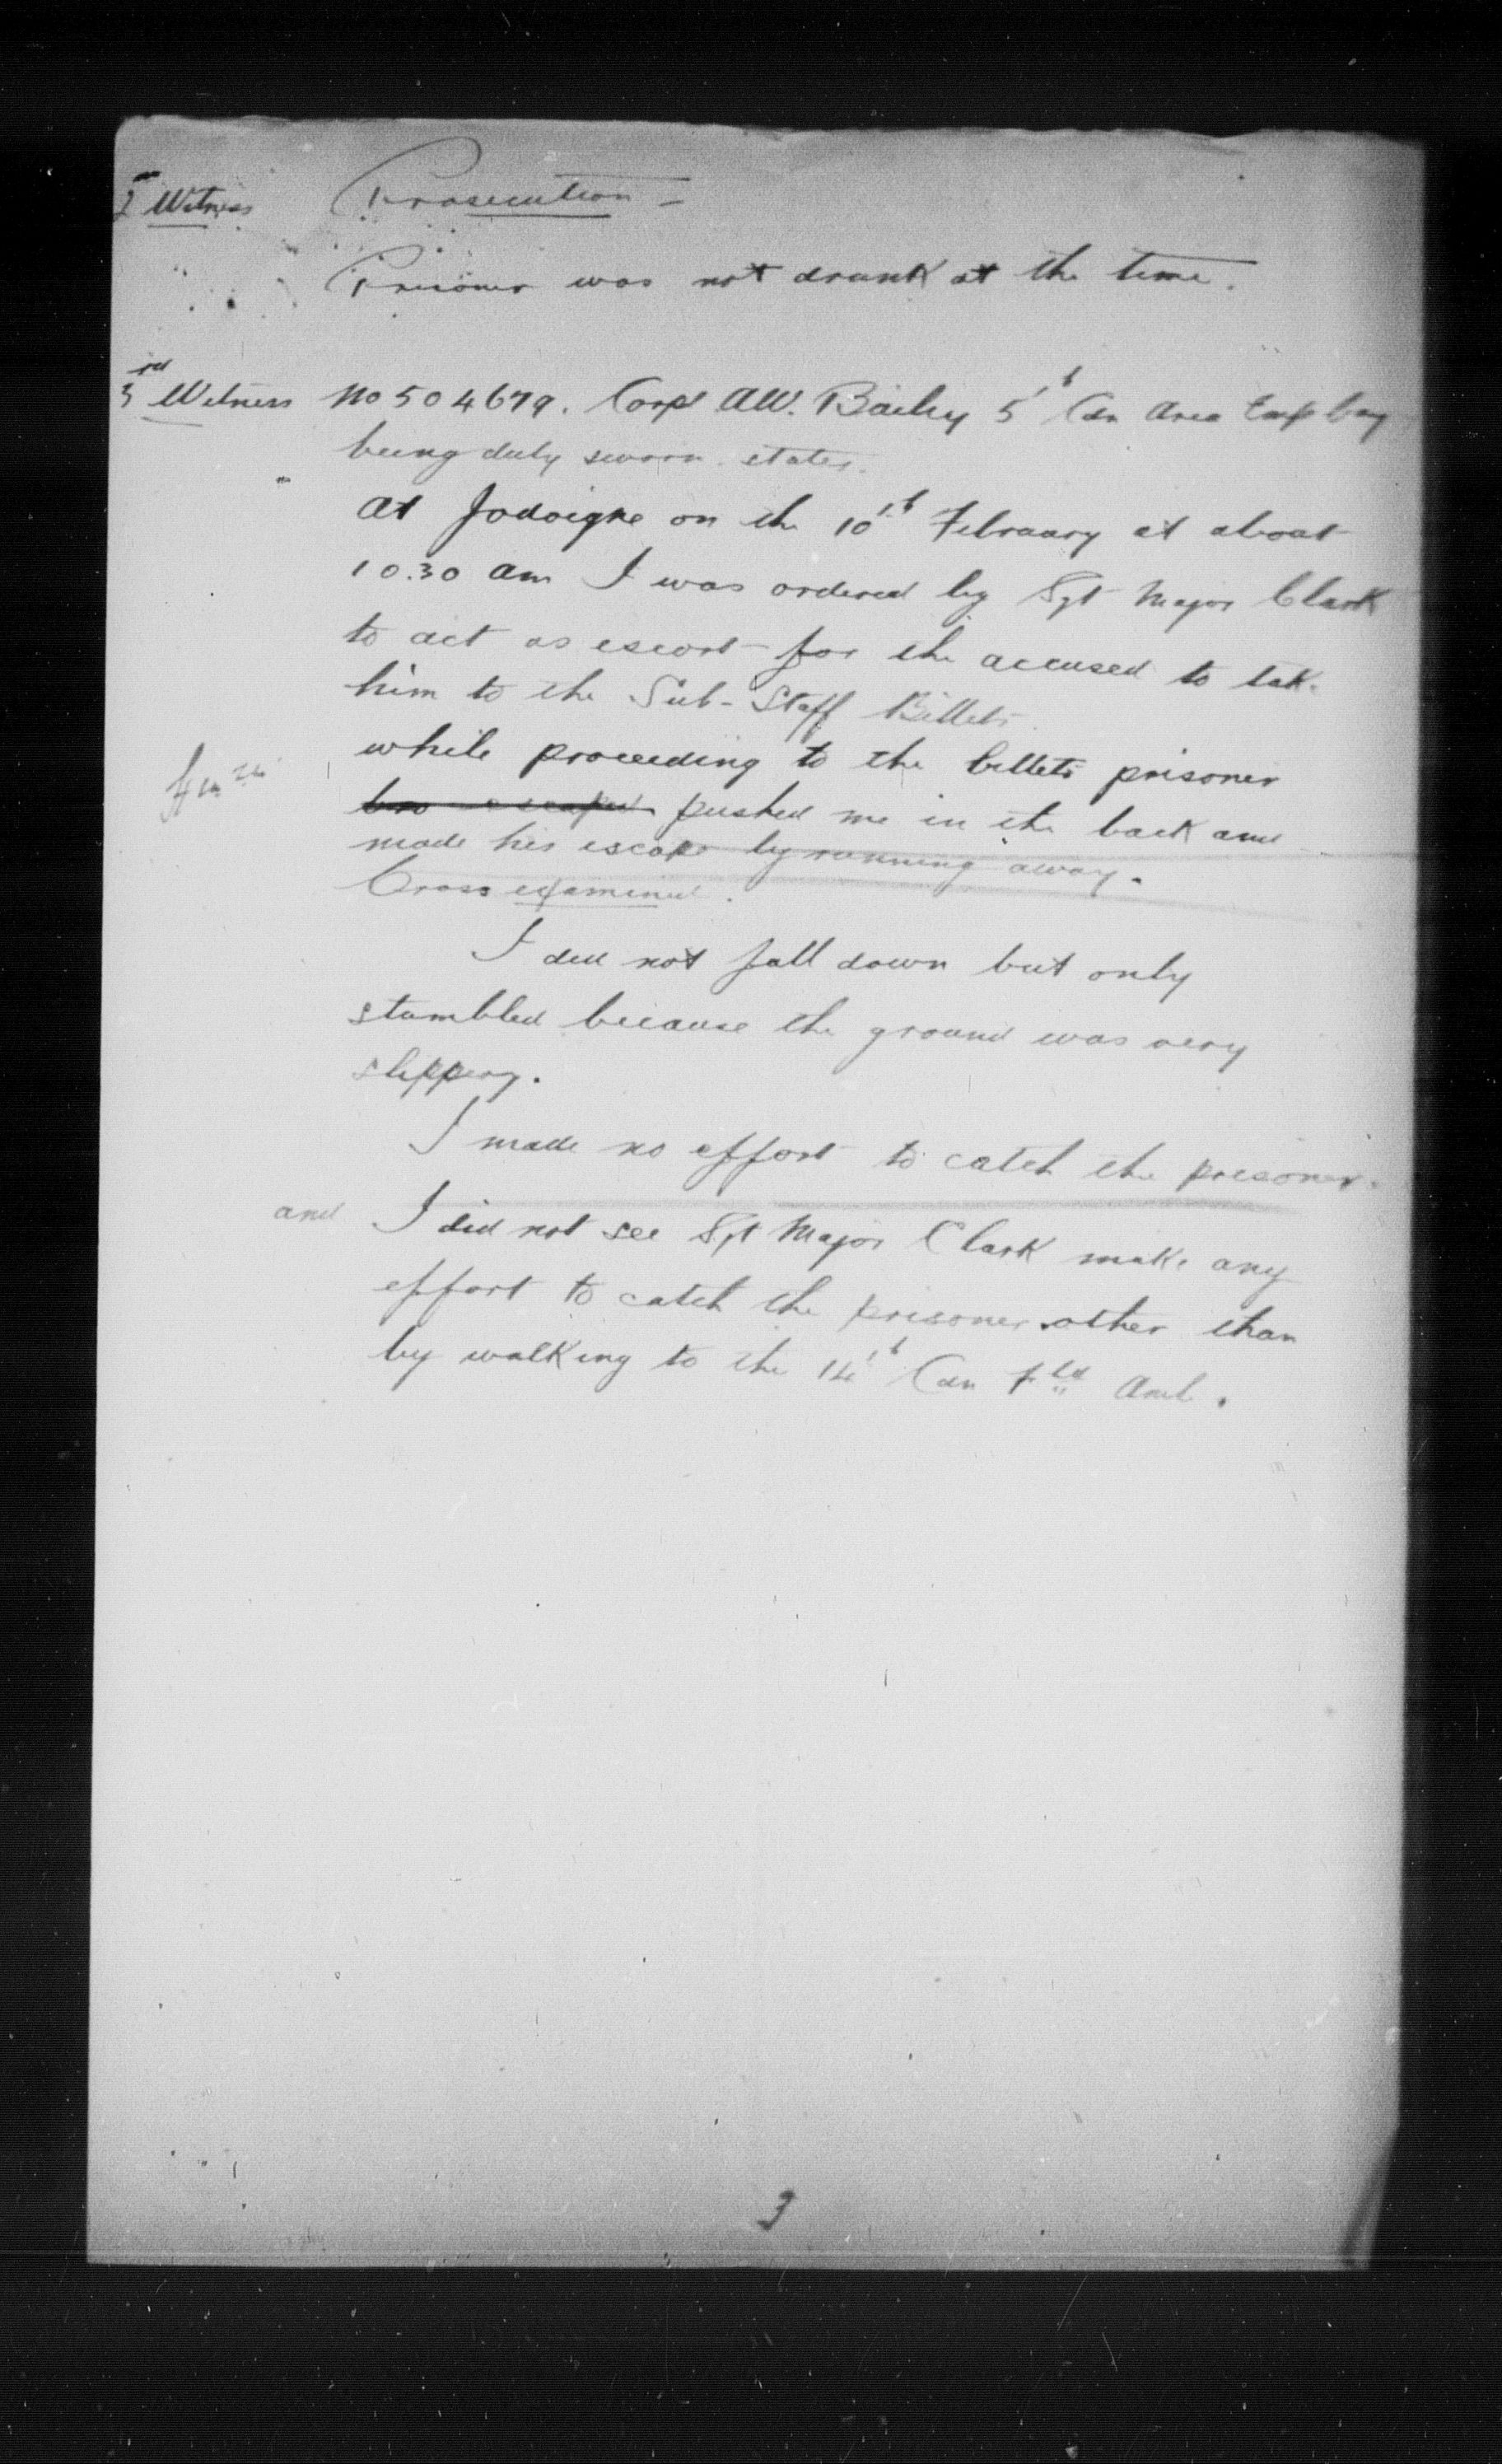 2 Witness Prosecution -
Prisoner was not drunk at the time.
3rd Witness No 504679. Corpl A.W. Bailey 5th Can Area Emp Coy
being duly sworn states.
At Jodoigne on the 10th February at about
10.30 am I was ordered by Sgt Major Clark
to act as escort for the accused to take
him to the Sub-Staff Billets.
while proceeding to the billets prisoner
escaped pushed me in the back and
made his escape by running away.
Cross examined.
I did not fall down but only
stumbled because the ground was very
slippery.
I made no effort to catch the prisoner.
and I did not see Sgt Major Clark make any
effort to catch the prisoner other than
by walking to the 14th Can Fld Amb.
3